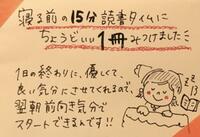 寝る前の15分読書タイムに
ちょうどいい1冊みつけました
1日の終わりに、優しくて、
良い気分にさせてくれるので、
翌朝前向き気分で
スタートできるんです!!